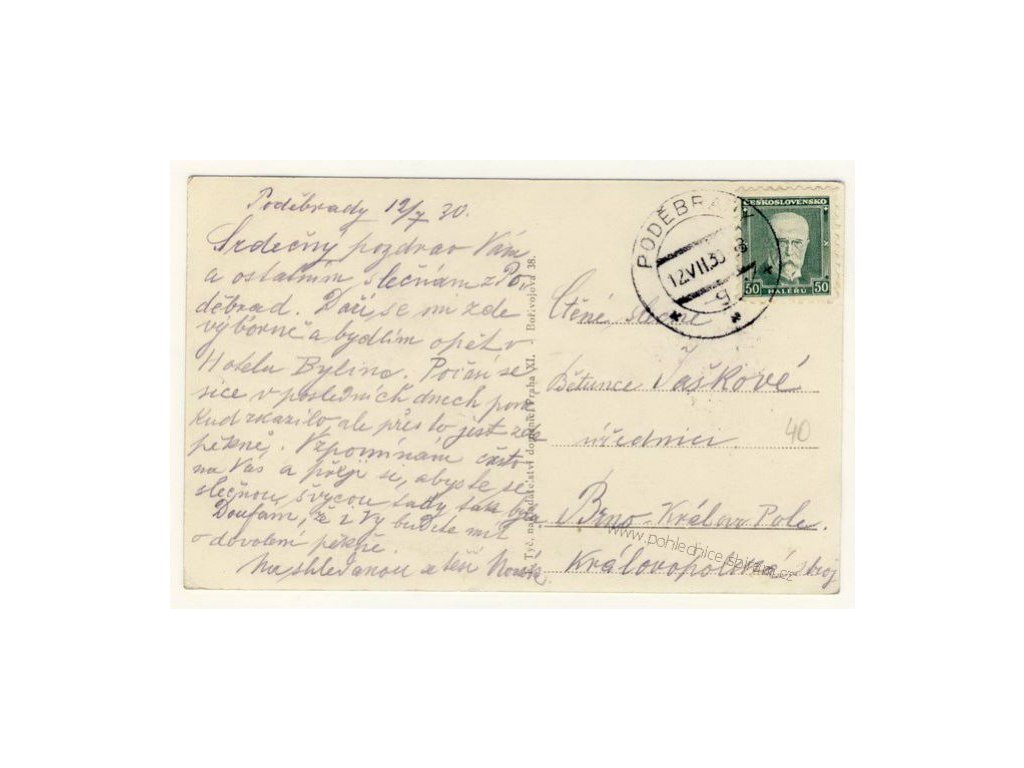 Poděbrady 12/7 30.
Srdečný pozdrav Vám
a ostatním slečnám z Po-
děbrad. Daří se mi zde
výborně a bydlím opět v
Hotelu Bylina. Počasí se
sice v posledních dnech pone
kud zkazilo, ale přes to jest zde
pěkně. Vzpomínám často
na Vás a přeji si, abyste se
slečnou tady byla
Doufám, že i Vy budete mít
o dovolení pěkně.
Na shledanou se těší
Tyč, nakladatelství dopisnic, Praha XI. Bořivojova 38.
PODĚBRADY
12.VII.30
ČESKOSLOVENSKO
50 HALÉŘŮ 50
Ctěné slečně
Jaškové
úřednici
40
Brno-Královo Pole.
Královopolská stroj
www.pohlednice-sbirka.cz